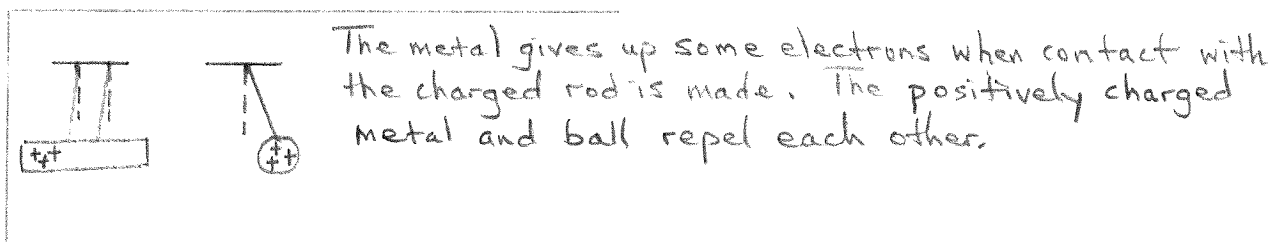 The metal gives up some electrons when contact with
the charged rod is made. The positively charged
metal and ball repel each other.
+++
+++